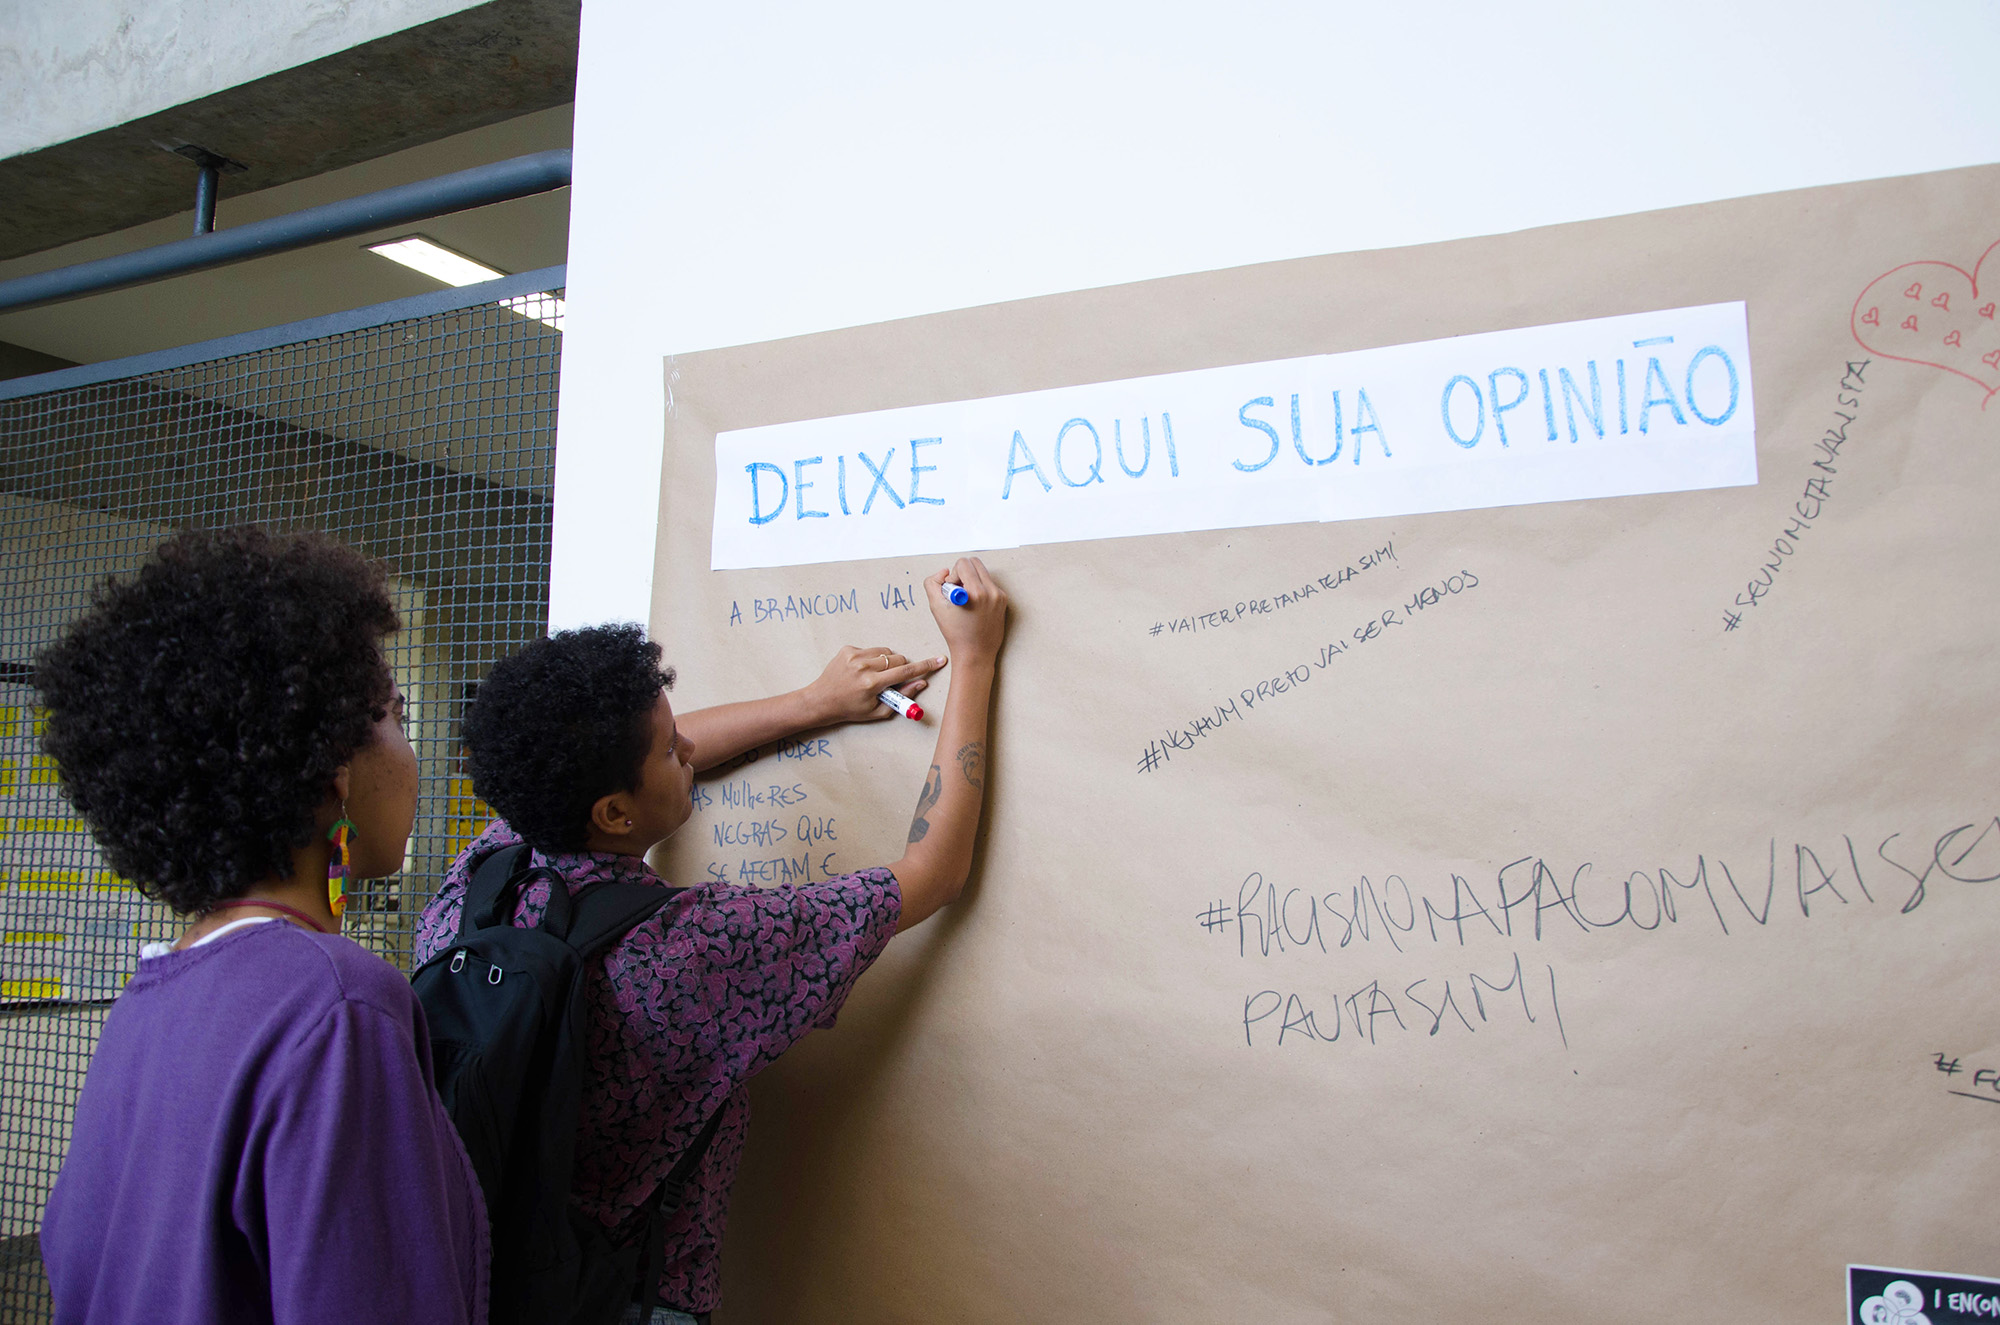 DEIXE AQUI SUA OPINIÃO
A BRANCOM VAI
PODER
AS MULHERES
NEGRAS QUE
SE AFETAM E
#VAITERPRETANATELASIM!
#NENHUM PRETO VAI SER MENOS
#SEUNOMETANALISTA
#RACISMONAFACOMVAISE
PAUTASIM!
# FO
I ENCON